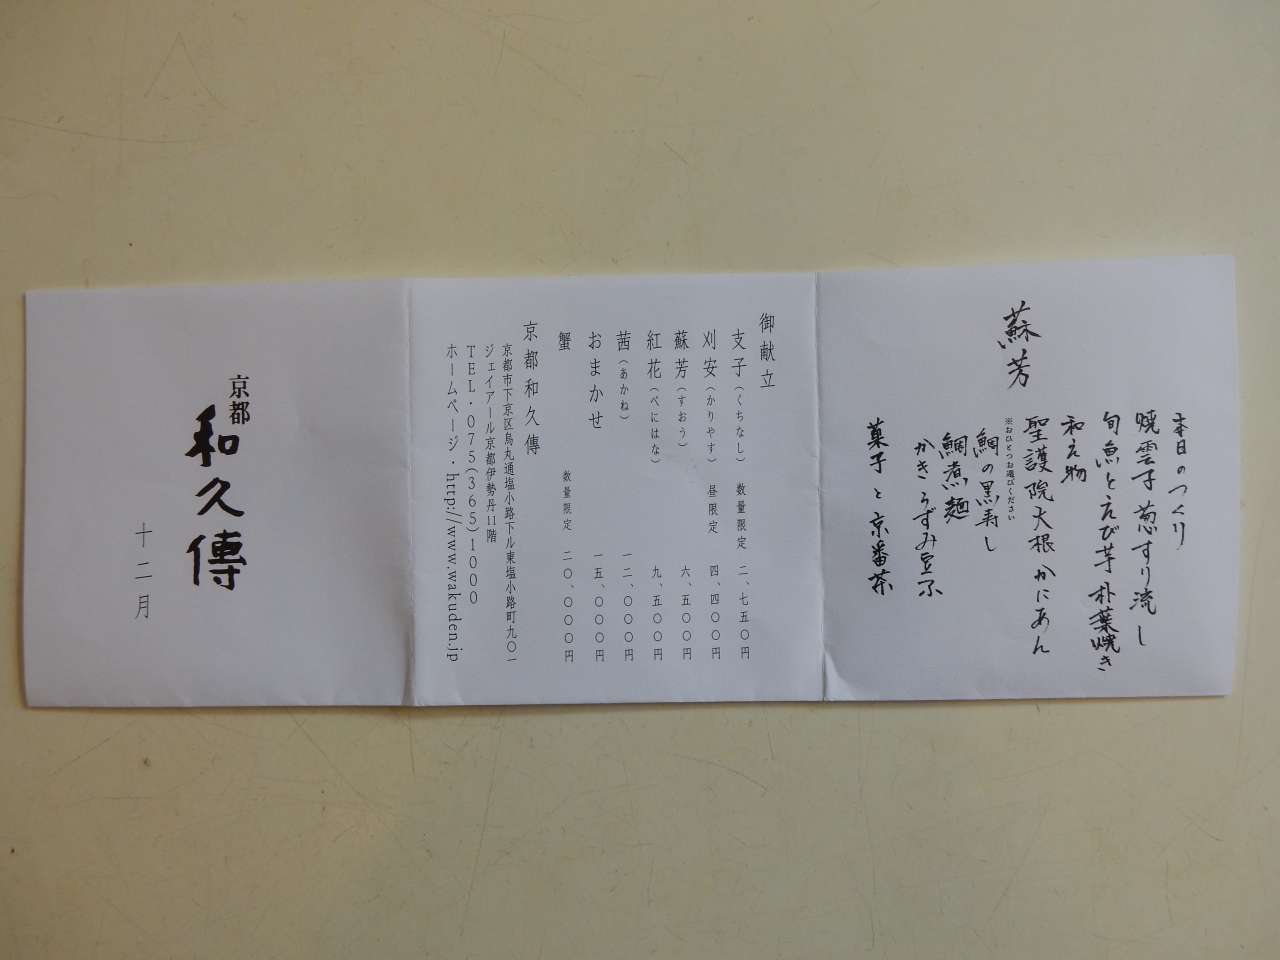 蘇芳
本日のつくり
焼雲子 葱すり流し
旬魚とえび芋 朴葉焼き
和え物
聖護院大根 かにあん
※おひとつお選びください
鯛の黒寿し
鯛煮麺
かきうずみ豆ふ
菓子と京番茶
御献立
支子(くちなし) 数量限定 二、七五〇円
刈安(かりやす) 昼限定 四、四〇〇円
蘇芳(すおう) 六、五〇〇円
紅花(べにはな) 九、五〇〇円
茜(あかね) 一二、〇〇〇円
おまかせ 一五、〇〇〇円
蟹 数量限定 二〇、〇〇〇円
京都和久傳
京都市下京区烏丸通塩小路下ル東塩小路町九〇一
ジェイアール京都伊勢丹11階
TEL・075(365)1000
ホームページ・http://www.wakuden.jp
京都
和久傳
十二月